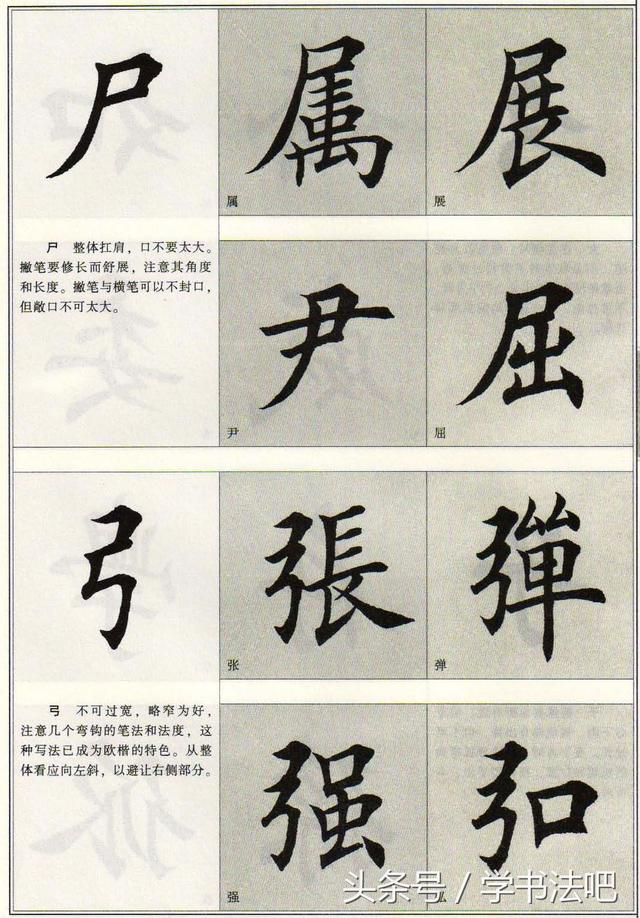 尸 属 展
属 展
尸 整体扛肩，口不要太大。
撇笔要修长而舒展，注意其角度
和长度。撇笔与横笔可以不封口，
但敞口不可太大。
尹 屈
尹 屈
弓 張 彈
张 弹
弓 不可过宽，略窄为好，
注意几个弯钩的笔法和法度，这
种写法已成为欧楷的特色。从整
体看应向左斜，以避让右侧部分。
强 弘
强 弘
头条号 / 学书法吧